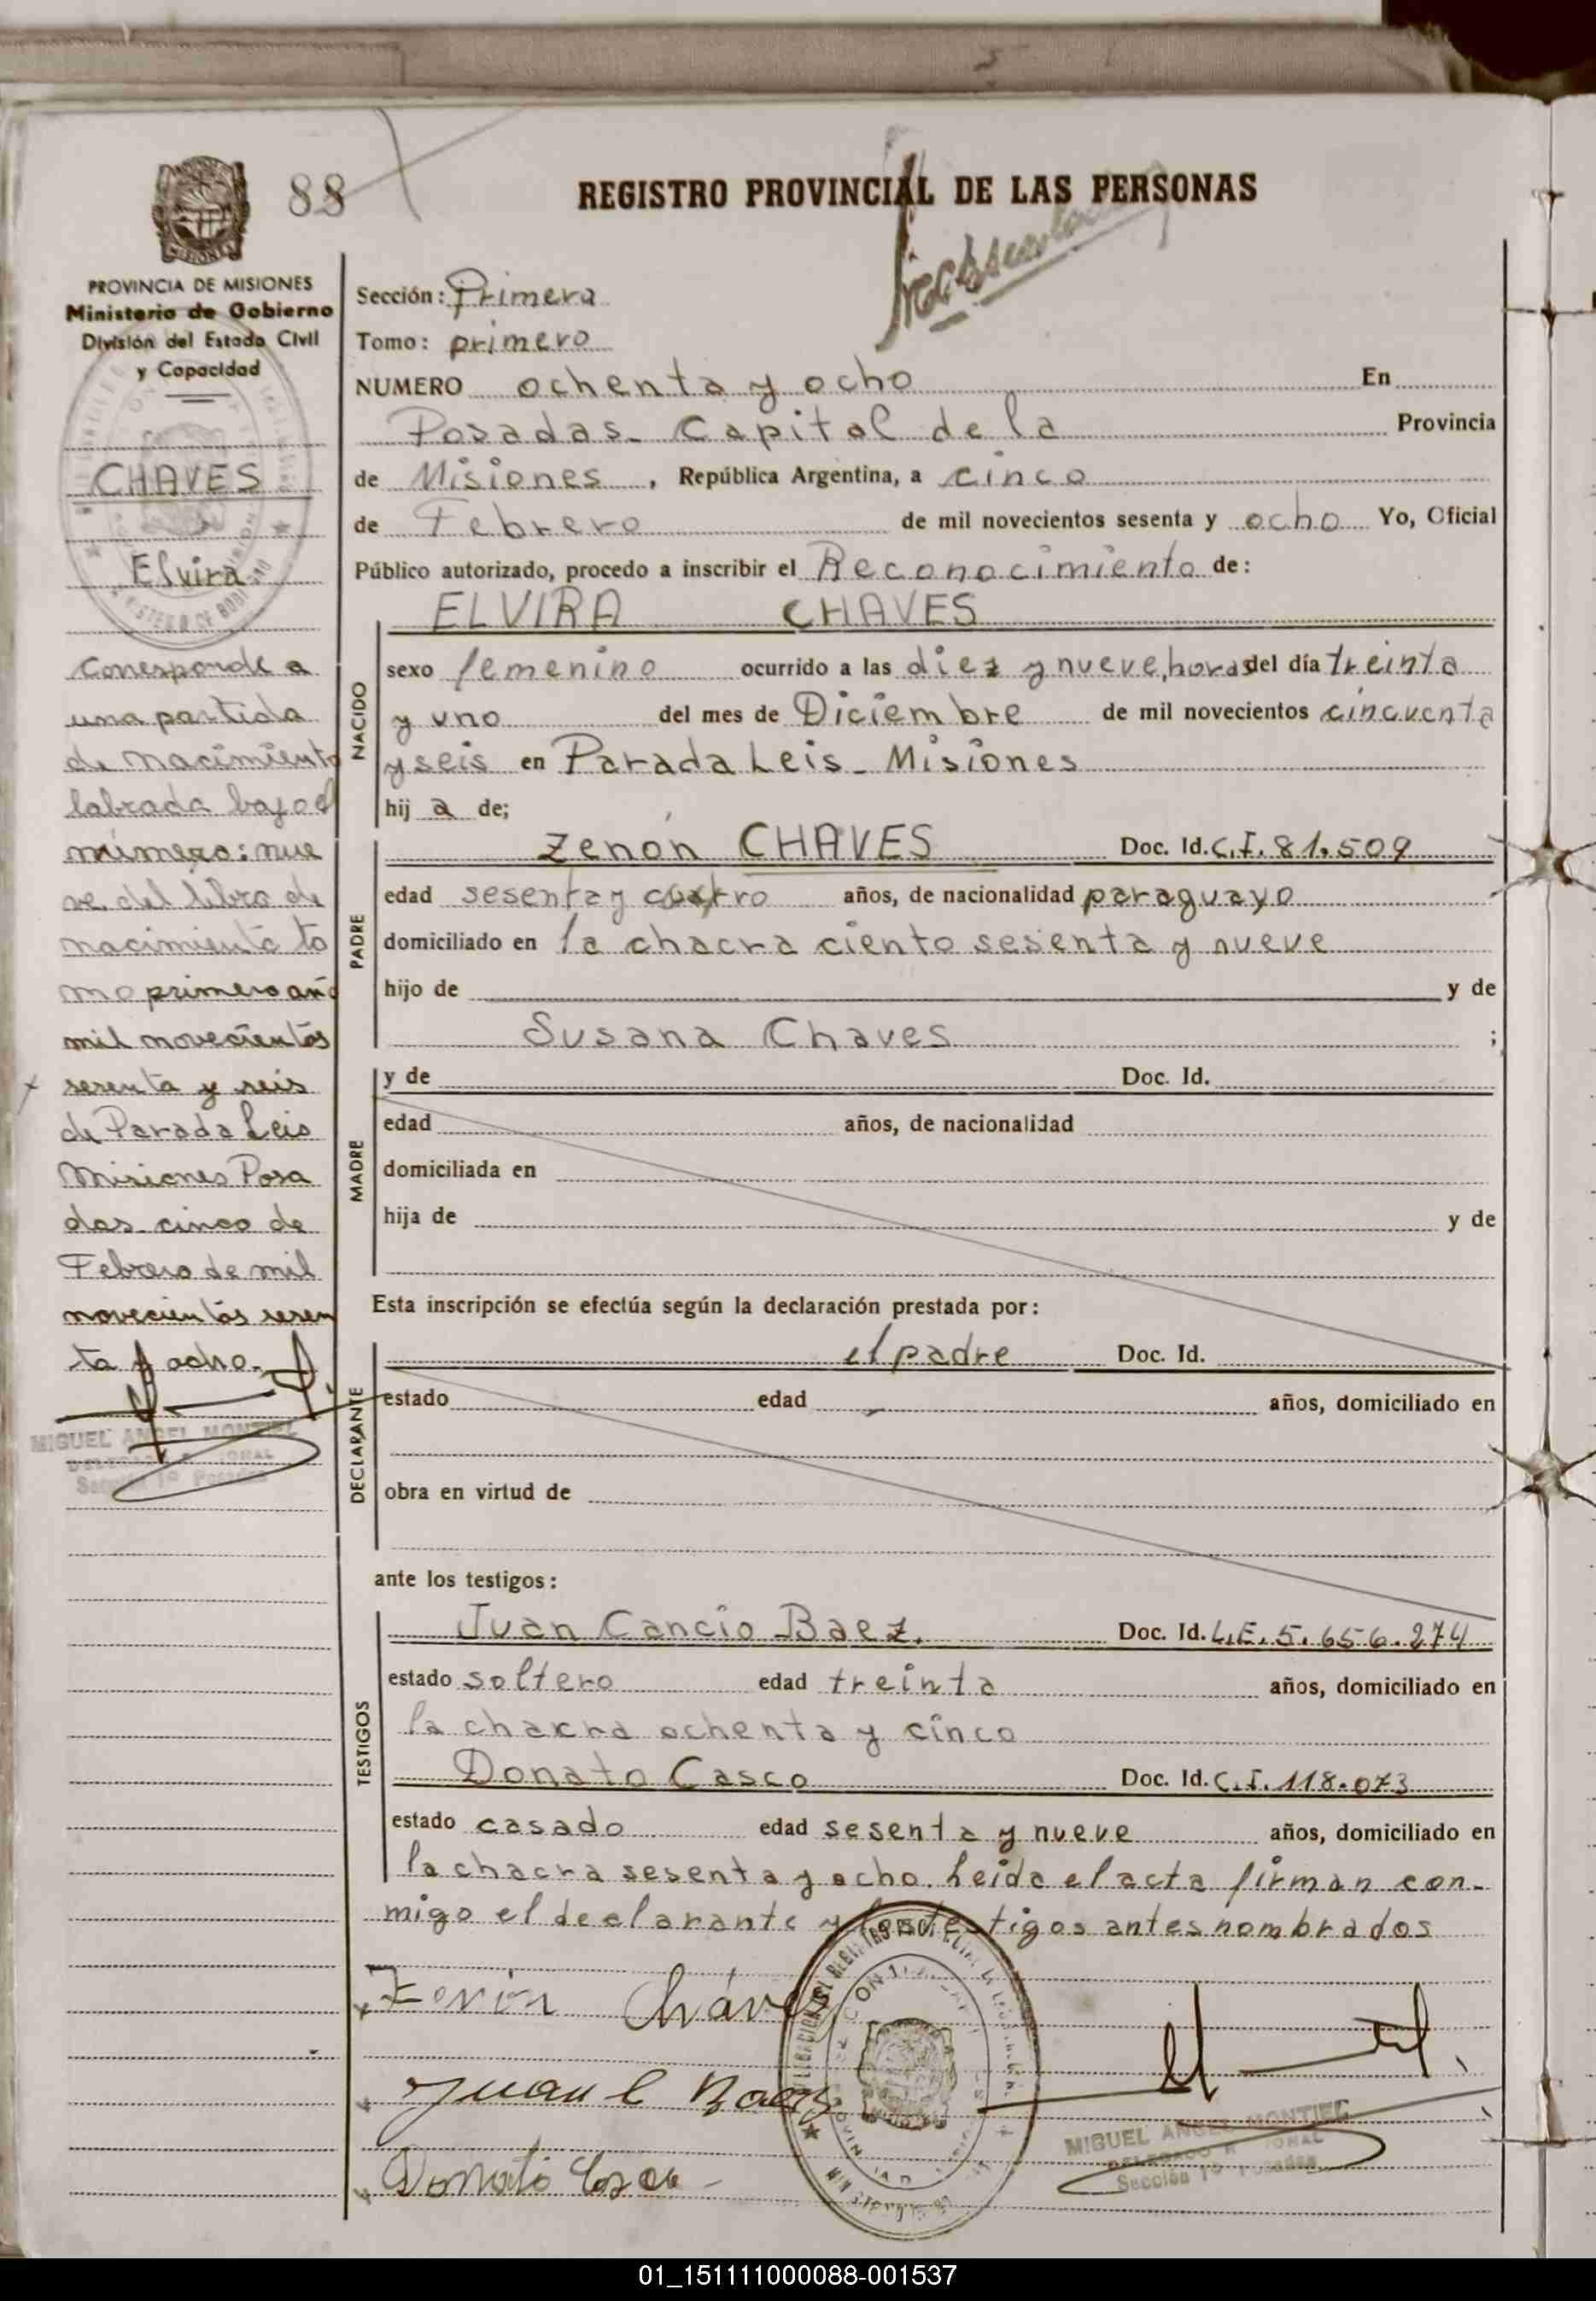 88
REGISTRO PROVINCIAL DE LAS PERSONAS
PROVINCIA DE MISIONES
Ministerio de Gobierno
División del Estado Civil
y Capacidad
CHAVES
Elvira
Corresponde a
una partida
de nacimiento
labrada bajo el
número: nue
ve del libro de
nacimiento to
mo primero año
mil novecientos
sesenta y seis
de Parada Leis
Misiones Posa
das cinco de
Febrero de mil
novecientos sesen
ta y ocho.
MIGUEL ANGEL MONTIEL
Sección 1ª Posadas
Sección: Primera
Tomo: primero
NUMERO ochenta y ocho En
Posadas. Capital de la Provincia
de Misiones, República Argentina, a cinco
de Febrero de mil novecientos sesenta y ocho Yo, Oficial
Público autorizado, procedo a inscribir el Reconocimiento de:
ELVIRA CHAVES
NACIDO
sexo femenino ocurrido a las diez y nueve, horas del día treinta
y uno del mes de Diciembre de mil novecientos cincuenta
y seis en Parada Leis - Misiones
hij a de;
PADRE
Zenón CHAVES Doc. Id. C.I. 81.509
edad sesenta y cuatro años, de nacionalidad paraguayo
domiciliado en la chacra ciento sesenta y nueve
hijo de y de
Susana Chaves ;
MADRE
y de Doc. Id.
edad años, de nacionalidad
domiciliada en
hija de y de
Esta inscripción se efectúa según la declaración prestada por:
DECLARANTE
el padre Doc. Id.
estado edad años, domiciliado en
obra en virtud de
ante los testigos:
TESTIGOS
Juan Cancio Baez. Doc. Id. L.E. 5.656.274
estado soltero edad treinta años, domiciliado en
la chacra ochenta y cinco
Donato Casco Doc. Id. C.I. 118.073
estado casado edad sesenta y nueve años, domiciliado en
la chacra sesenta y ocho. Leida el acta firman con-
migo el declarante y los testigos antes nombrados
Zenón Cháves
Juan C Baez
Donato Casco
MIGUEL ANGEL MONTIEL
Sección 1ª Posadas
01_151111000088-001537